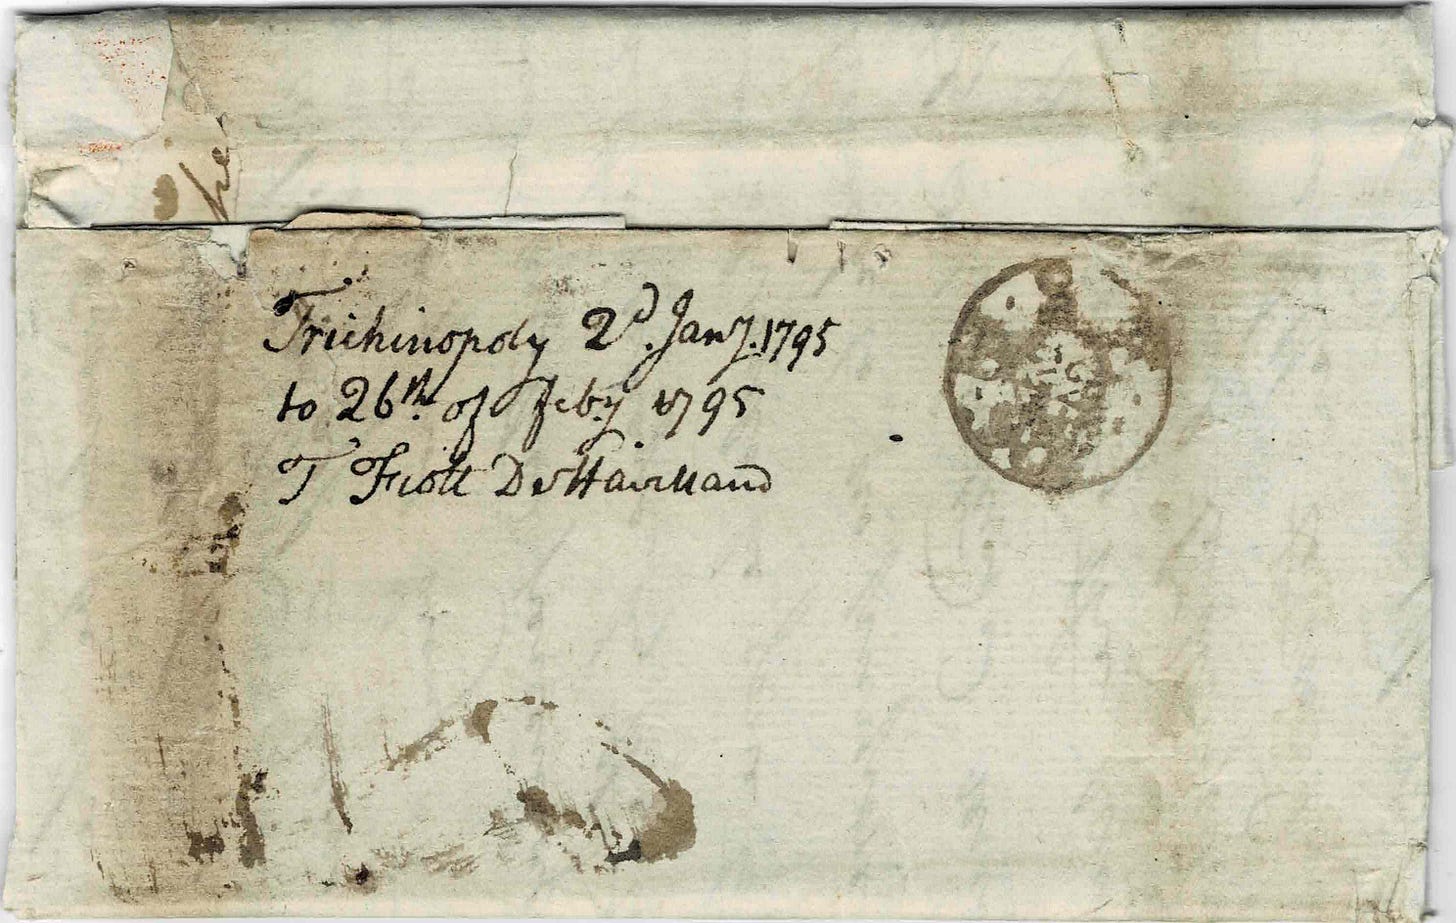 he
Trichinopoly 2d. Jany. 1795
to 26th. of Feby 1795
T Fiott DeHavilland